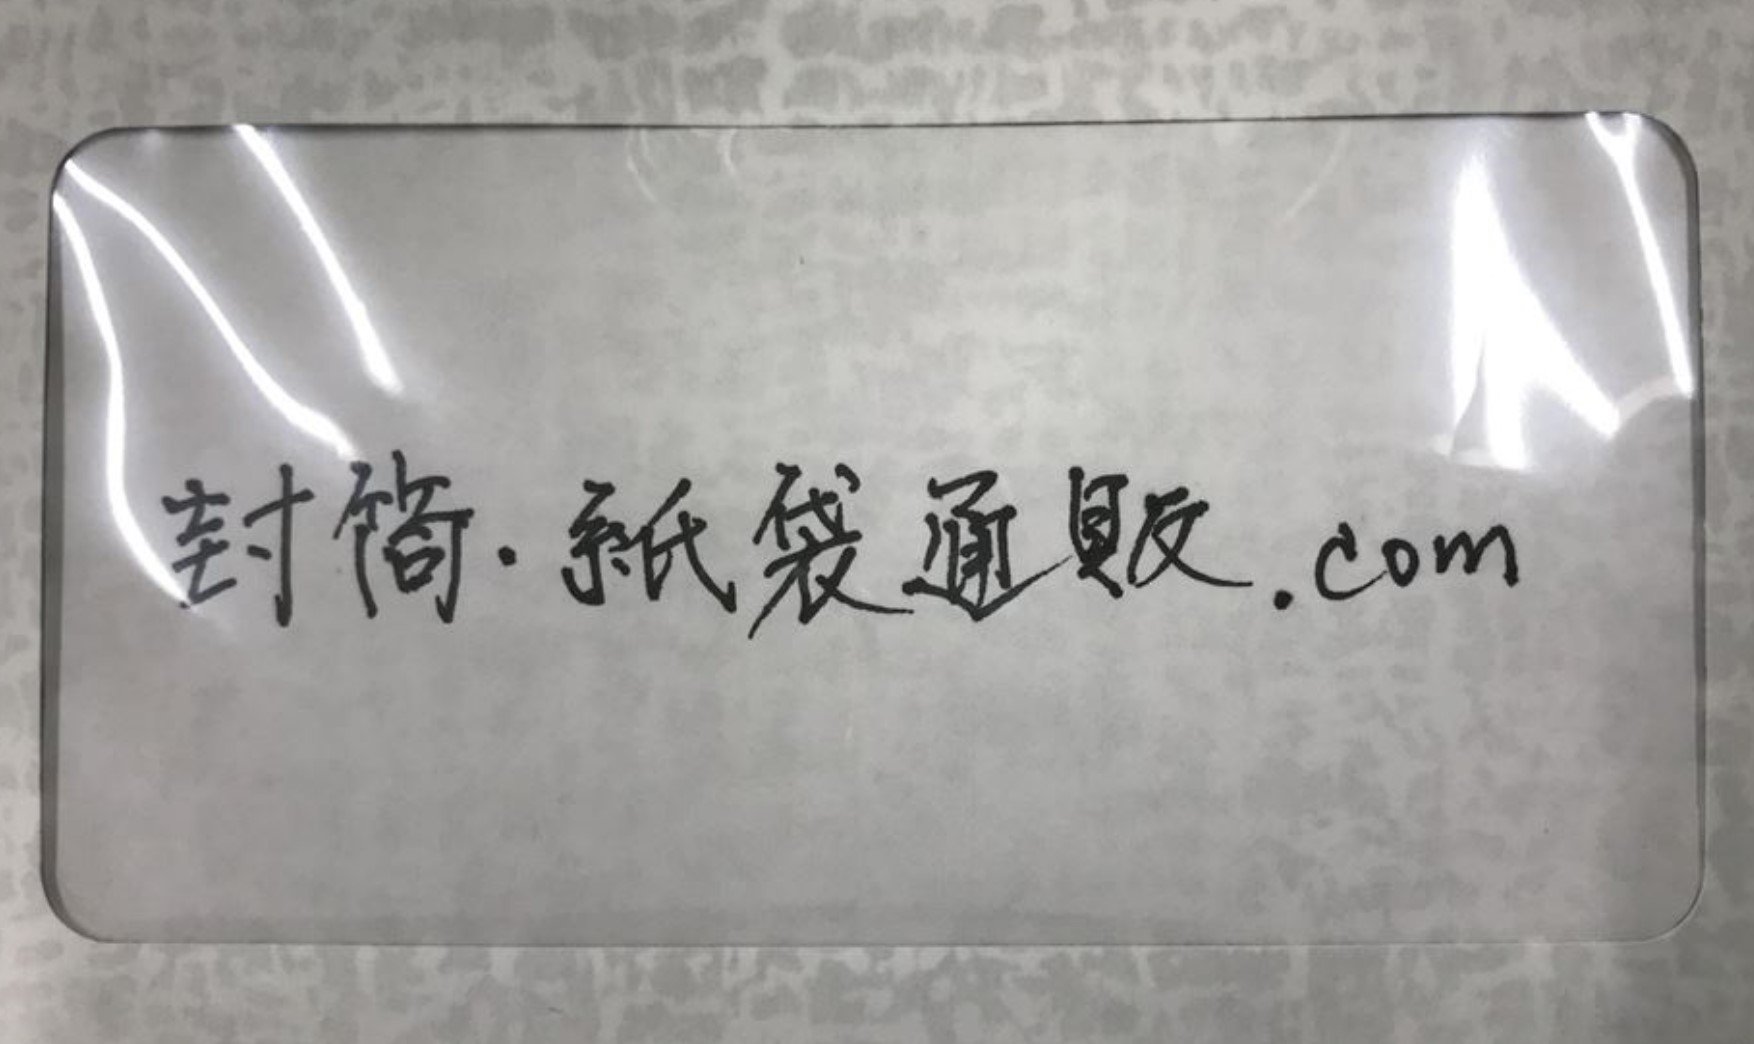 封筒・紙袋通販.com